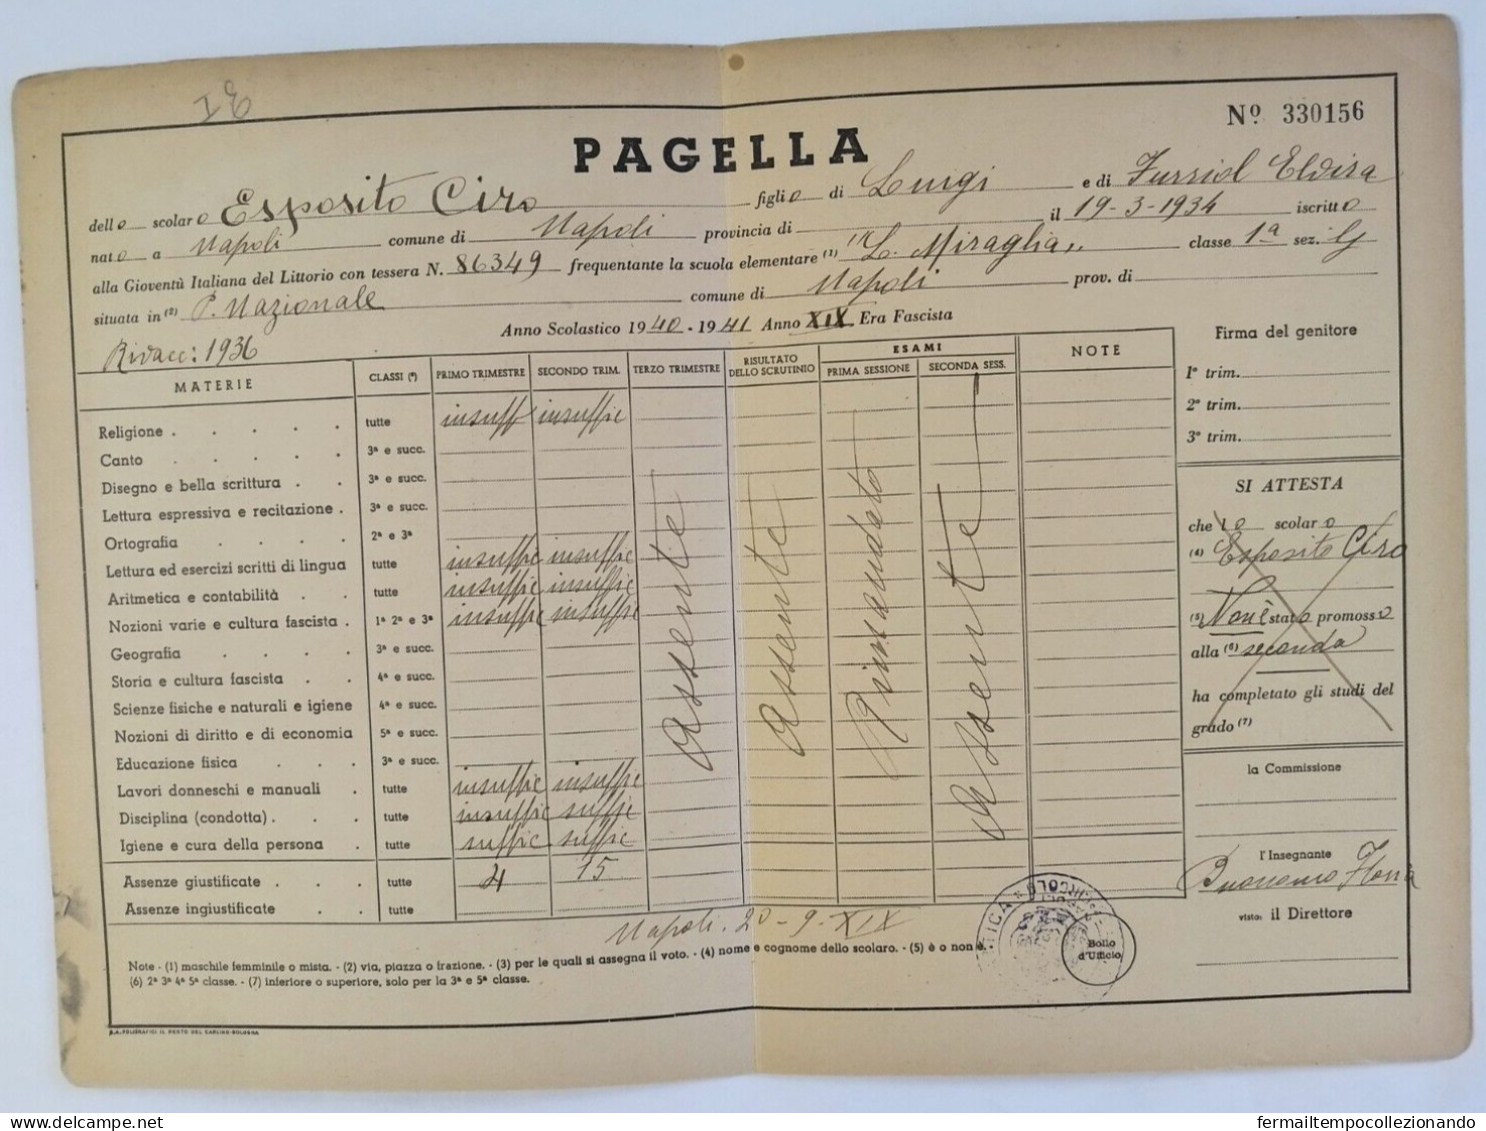 I E
Nº 330156
PAGELLA
dello scolaro Esposito Ciro figlio di Luigi e di Elvira
nato a Napoli comune di Napoli provincia di il 19-3-1934 iscritto
alla Gioventù Italiana del Littorio con tessera N. 86349 frequentante la scuola elementare (1) "L. Miraglia" classe 1ª sez. G
situata in (2) P. Nazionale comune di Napoli prov. di
Rivacc: 1936
Anno Scolastico 1940 - 1941 Anno XIX Era Fascista
MATERIE CLASSI (³) PRIMO TRIMESTRE SECONDO TRIM. TERZO TRIMESTRE RISULTATO DELLO SCRUTINIO ESAMI PRIMA SESSIONE SECONDA SESS. NOTE
Religione . . . . . tutte insuff insuffic
Canto . . . . . 3ª e succ.
Disegno e bella scrittura . . 3ª e succ.
Lettura espressiva e recitazione . 3ª e succ.
Ortografia . . . . 2ª e 3ª
Lettura ed esercizi scritti di lingua tutte insuffic insuffic
Aritmetica e contabilità . . tutte insuffic insuffic
Nozioni varie e cultura fascista . 1ª 2ª e 3ª insuffic insuffic
Geografia . . . . 3ª e succ.
Storia e cultura fascista . . 4ª e succ.
Scienze fisiche e naturali e igiene 4ª e succ.
Nozioni di diritto e di economia 5ª e succ.
Educazione fisica . . . 3ª e succ.
Lavori donneschi e manuali . tutte insuffic insuffic
Disciplina (condotta) . . . tutte insuffic suffic
Igiene e cura della persona . tutte suffic suffic
Assenze giustificate . . . tutte 4 15
Assenze ingiustificate . . tutte
Assente
Assente
Rimandato
Assente
Napoli. 20-9-XIX
Note - (1) maschile femminile o mista. - (2) via, piazza o frazione. - (3) per le quali si assegna il voto. - (4) nome e cognome dello scolaro. - (5) è o non è. -
(6) 2ª 3ª 4ª 5ª classe. - (7) inferiore o superiore, solo per la 3ª e 5ª classe.
S.A. POLIGRAFICI IL RESTO DEL CARLINO-BOLOGNA
Bollo
d'Ufficio
Firma del genitore
1º trim.
2º trim.
3º trim.
SI ATTESTA
che lo scolaro
(4) Esposito Ciro
(5) Non è stato promosso
alla (6) seconda
ha completato gli studi del
grado (7)
la Commissione
l'Insegnante
visto: il Direttore
fermailtempocollezionando